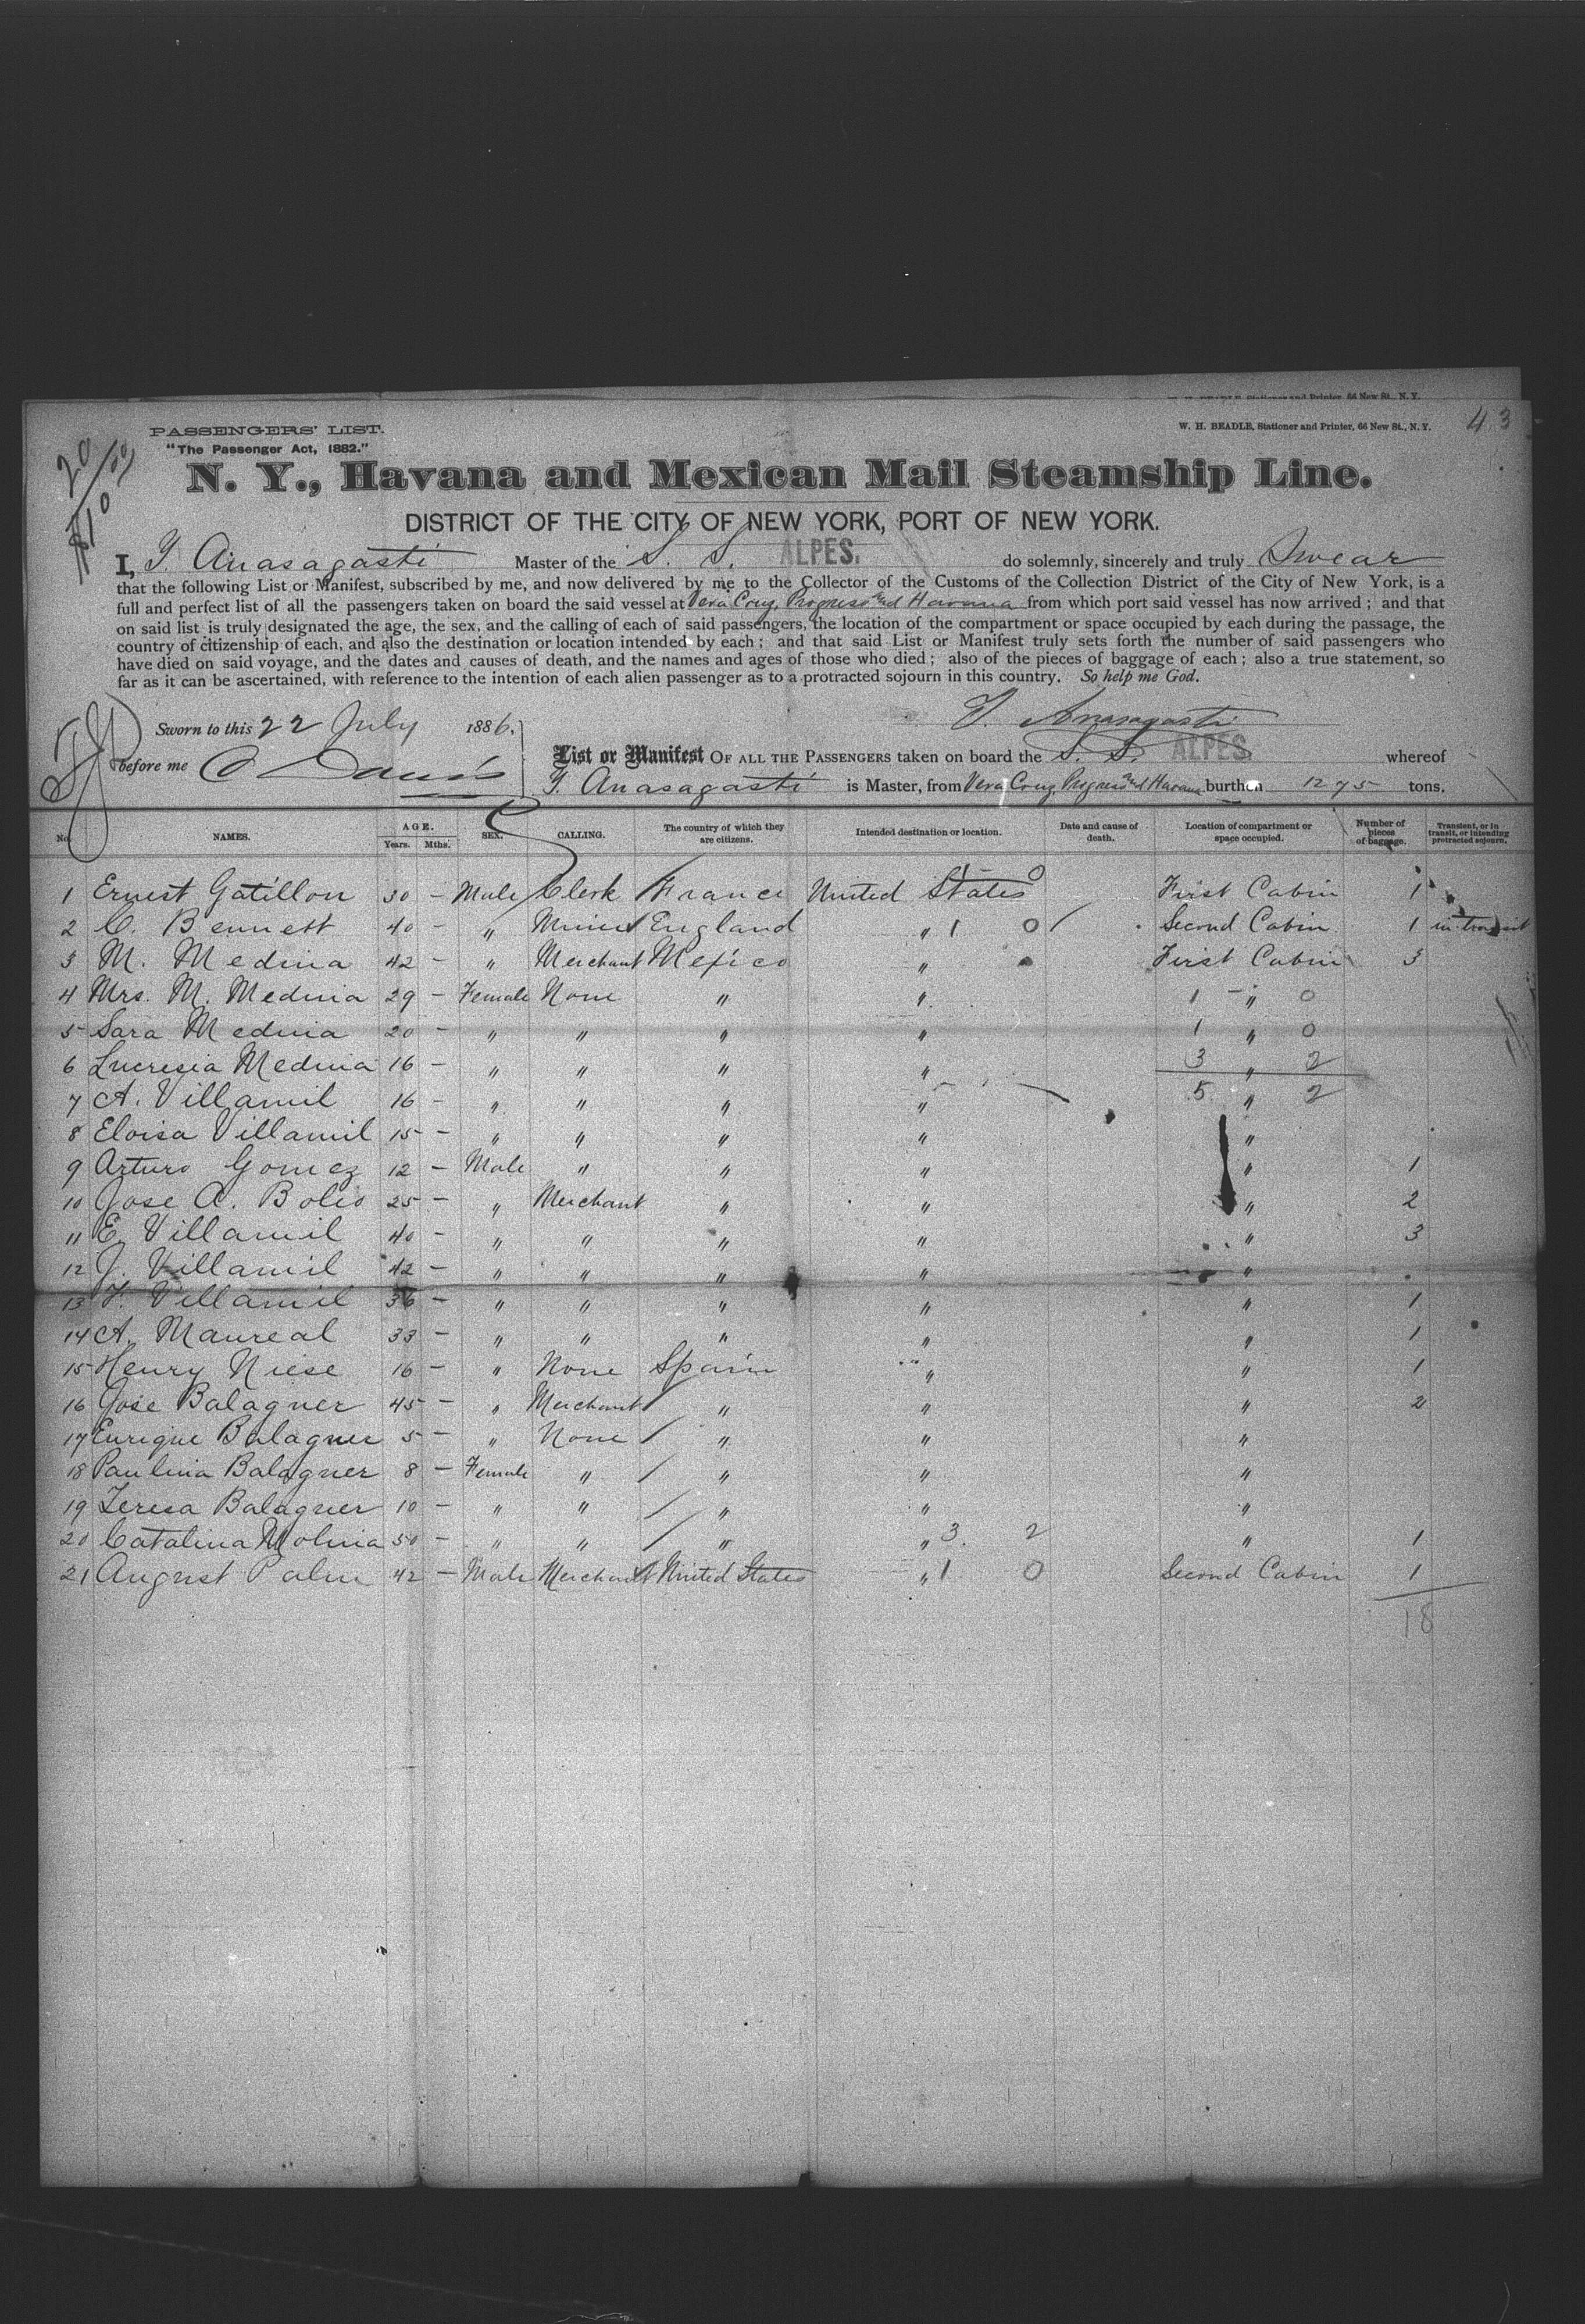 W. H. BEADLE, Stationer and Printer, 66 New St., N. Y.
43
PASSENGERS' LIST.
"The Passenger Act, 1882."
N. Y., Havana and Mexican Mail Steamship Line.
DISTRICT OF THE CITY OF NEW YORK, PORT OF NEW YORK.
I, Anasagasti Master of the S. S. ALPES. do solemnly, sincerely and truly Swear
that the following List or Manifest, subscribed by me, and now delivered by me to the Collector of the Customs of the Collection District of the City of New York, is a
full and perfect list of all the passengers taken on board the said vessel at Vera Cruz, Progreso and Havana from which port said vessel has now arrived; and that
on said list is truly designated the age, the sex, and the calling of each of said passengers, the location of the compartment or space occupied by each during the passage, the
country of citizenship of each, and also the destination or location intended by each; and that said List or Manifest truly sets forth the number of said passengers who
have died on said voyage, and the dates and causes of death, and the names and ages of those who died; also of the pieces of baggage of each; also a true statement, so
far as it can be ascertained, with reference to the intention of each alien passenger as to a protracted sojourn in this country. So help me God.
Anasagasti
Sworn to this 22 July 1886.
before me Davis
List or Manifest OF ALL THE PASSENGERS taken on board the S. S. ALPES. whereof
Anasagasti is Master, from Vera Cruz, Progreso and Havana burthen 1275 tons.
No. NAMES. AGE. Years. Mths. SEX. CALLING. The country of which they are citizens. Intended destination or location. Date and cause of death. Location of compartment or space occupied. Number of pieces of baggage. Transient, or in transit, or intending protracted sojourn.
1 Ernest Gatillon 30 – Male Clerk France United States First Cabin 1
2 C. Bennett 40 – " Miner England " 1 0 Second Cabin 1 in transit
3 M. Medina 42 – " Merchant Mexico " First Cabin 3
4 Mrs. M. Medina 29 – Female None " " 1 " 0
5 Sara Medina 20 – " " " " 1 " 0
6 Lucresia Medina 16 – " " " " 3 " 2
7 A. Villamil 16 – " " " " 5 " 2
8 Eloisa Villamil 15 – " " " " "
9 Arturo Gomez 12 – Male " " " " 1
10 Jose A. Bolio 25 – " Merchant " " " 2
11 E. Villamil 40 – " " " " " 3
12 J. Villamil 42 – " " " " "
13 Villamil 36 – " " " " " 1
14 A. Maureal 33 – " " " " " 1
15 Henry Niese 16 – " None Spain " " 1
16 Jose Balaguer 45 – " Merchant " " " 2
17 Enrique Balaguer 5 – " None " " "
18 Paulina Balaguer 8 – Female " " " "
19 Teresa Balaguer 10 – " " " " "
20 Catalina Molina 50 – " " " " 3 2 " 1
21 August Palm 42 – Male Merchant United States " 1 0 Second Cabin 1
18